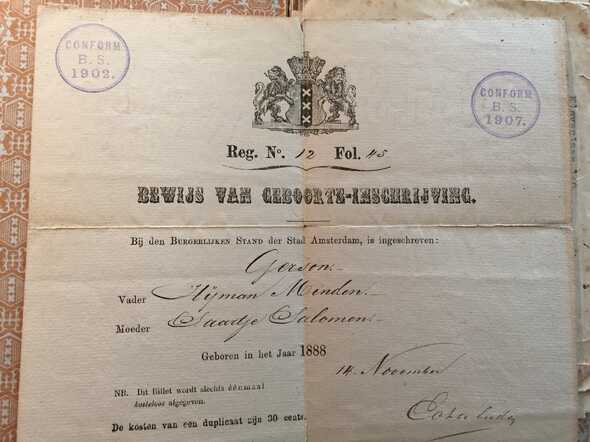 CONFORM
B. S.
1902.
CONFORM
B. S.
1907.
Reg. No. 12 Fol. 45
BEWIJS VAN GEBOORTE-INSCHRIJVING.
Bij den BURGERLIJKEN STAND der Stad Amsterdam, is ingeschreven:
Gerson
Vader Hijman Minden
Moeder Saadje Salomon
Geboren in het Jaar 1888
14 November
NB. Dit Billet wordt slechts éénmaal
kosteloos afgegeven.
De kosten van een duplicaat zijn 30 cents.